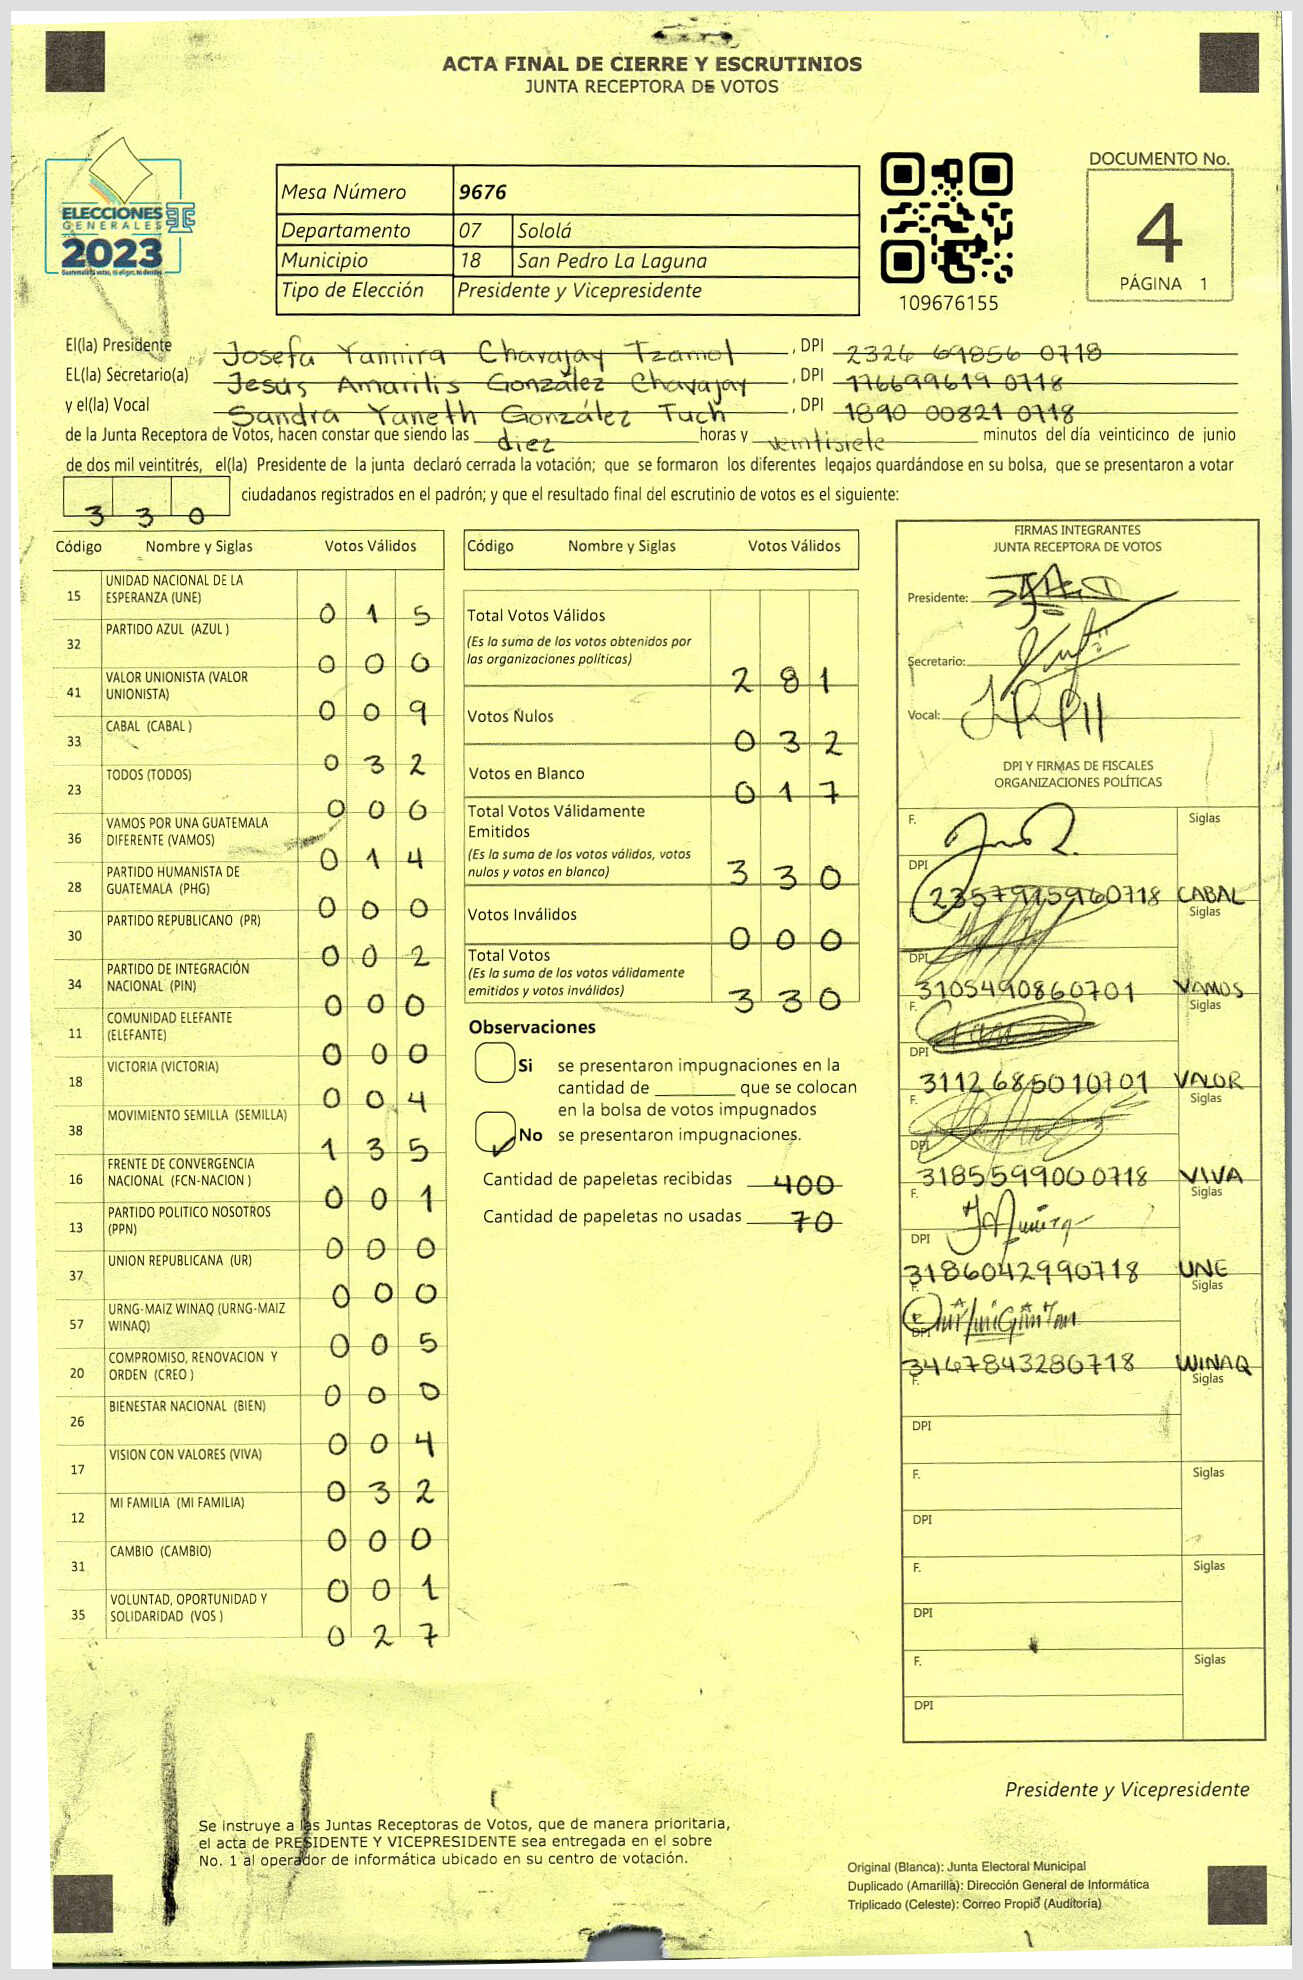 ACTA FINAL DE CIERRE Y ESCRUTINIOS
JUNTA RECEPTORA DE VOTOS
ELECCIONES
GENERALES
2023
Mesa Número 9676
Departamento 07 Sololá
Municipio 18 San Pedro La Laguna
Tipo de Elección Presidente y Vicepresidente
109676155
DOCUMENTO No.
4
PÁGINA 1
El(la) Presidente Josefa Yannira Chavajay Tzamol, DPI 2326 69856 0718
EL(la) Secretario(a) Jesús Amarilis González Chavajay, DPI 176699619 0718
y el(la) Vocal Sandra Yaneth González Tuch, DPI 1890 00821 0718
de la Junta Receptora de Votos, hacen constar que siendo las diez horas y veintisiete minutos del día veinticinco de junio
de dos mil veintitrés, el(la) Presidente de la junta declaró cerrada la votación; que se formaron los diferentes legajos guardándose en su bolsa, que se presentaron a votar
330 ciudadanos registrados en el padrón; y que el resultado final del escrutinio de votos es el siguiente:
Código Nombre y Siglas Votos Válidos
15 UNIDAD NACIONAL DE LA ESPERANZA (UNE) 015
32 PARTIDO AZUL (AZUL ) 000
41 VALOR UNIONISTA (VALOR UNIONISTA) 009
33 CABAL (CABAL ) 032
23 TODOS (TODOS) 000
36 VAMOS POR UNA GUATEMALA DIFERENTE (VAMOS) 014
28 PARTIDO HUMANISTA DE GUATEMALA (PHG) 000
30 PARTIDO REPUBLICANO (PR) 002
34 PARTIDO DE INTEGRACIÓN NACIONAL (PIN) 000
11 COMUNIDAD ELEFANTE (ELEFANTE) 000
18 VICTORIA (VICTORIA) 004
38 MOVIMIENTO SEMILLA (SEMILLA) 135
16 FRENTE DE CONVERGENCIA NACIONAL (FCN-NACION ) 001
13 PARTIDO POLITICO NOSOTROS (PPN) 000
37 UNION REPUBLICANA (UR) 000
57 URNG-MAIZ WINAQ (URNG-MAIZ WINAQ) 005
20 COMPROMISO, RENOVACION Y ORDEN (CREO ) 000
26 BIENESTAR NACIONAL (BIEN) 004
17 VISION CON VALORES (VIVA) 032
12 MI FAMILIA (MI FAMILIA) 000
31 CAMBIO (CAMBIO) 001
35 VOLUNTAD, OPORTUNIDAD Y SOLIDARIDAD (VOS ) 027
Código Nombre y Siglas Votos Válidos
Total Votos Válidos
(Es la suma de los votos obtenidos por
las organizaciones políticas)
281
Votos Nulos 032
Votos en Blanco 017
Total Votos Válidamente
Emitidos
(Es la suma de los votos válidos, votos
nulos y votos en blanco) 330
Votos Inválidos 000
Total Votos
(Es la suma de los votos válidamente
emitidos y votos inválidos) 330
Observaciones
Si se presentaron impugnaciones en la
cantidad de ________ que se colocan
en la bolsa de votos impugnados
No se presentaron impugnaciones.
Cantidad de papeletas recibidas 400
Cantidad de papeletas no usadas 70
FIRMAS INTEGRANTES
JUNTA RECEPTORA DE VOTOS
Presidente:
Secretario:
Vocal:
DPI Y FIRMAS DE FISCALES
ORGANIZACIONES POLÍTICAS
F. Siglas
DPI 2357915960718 CABAL
F. Siglas
DPI 3105490860701 VAMOS
F. Siglas
DPI 3112685010701 VALOR
F. Siglas
DPI 3185599000718 VIVA
F. Siglas
DPI 3186042990718 UNE
F. Siglas
DPI 3467843280718 WINAQ
F. Siglas
DPI
F. Siglas
DPI
F. Siglas
DPI
F. Siglas
DPI
Presidente y Vicepresidente
Se instruye a las Juntas Receptoras de Votos, que de manera prioritaria,
el acta de PRESIDENTE Y VICEPRESIDENTE sea entregada en el sobre
No. 1 al operador de informática ubicado en su centro de votación.
Original (Blanca): Junta Electoral Municipal
Duplicado (Amarilla): Dirección General de Informática
Triplicado (Celeste): Correo Propio (Auditoría)